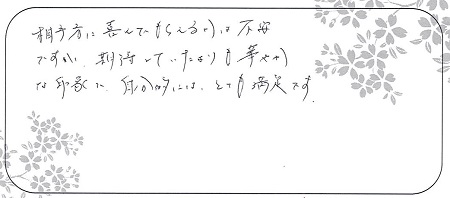 相手方に喜んでもらえるかは不安
ですが、期待していたよりも華やか
な印象で、自分的には、とても満足です。